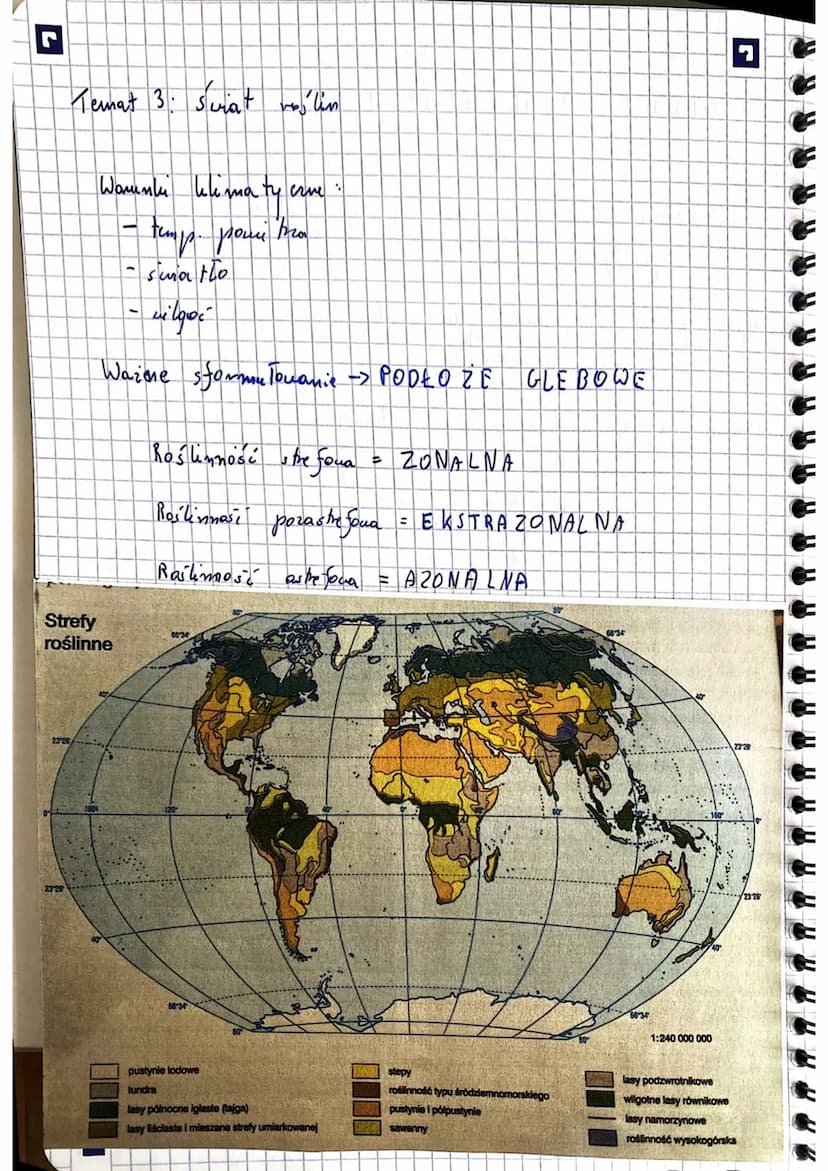 Temat 3: świat roślin
Warunki klimatyczne:
- temp. powietrza
- światło
- wilgoć
Ważne sformułowanie -> PODŁOŻE GLEBOWE
Roślinność strefowa = ZONALNA
Roślinność pozastrefowa = EKSTRAZONALNA
Roślinność astrefowa = AZONALNA
Strefy
roślinne
80° 80°
66°34' 66°34'
40° 40°
23°26' 23°26'
0° 160° 120° 80° 40° 0° 80° 160° 0°
23°26' 23°26'
40° 40°
66°34' 66°34'
80° 80°
1:240 000 000
pustynie lodowe
tundra
lasy północne iglaste (tajga)
lasy liściaste i mieszane strefy umiarkowanej
stepy
roślinność typu śródziemnomorskiego
pustynie i półpustynie
sawanny
lasy podzwrotnikowe
wilgotne lasy równikowe
lasy namorzynowe
roślinność wysokogórska